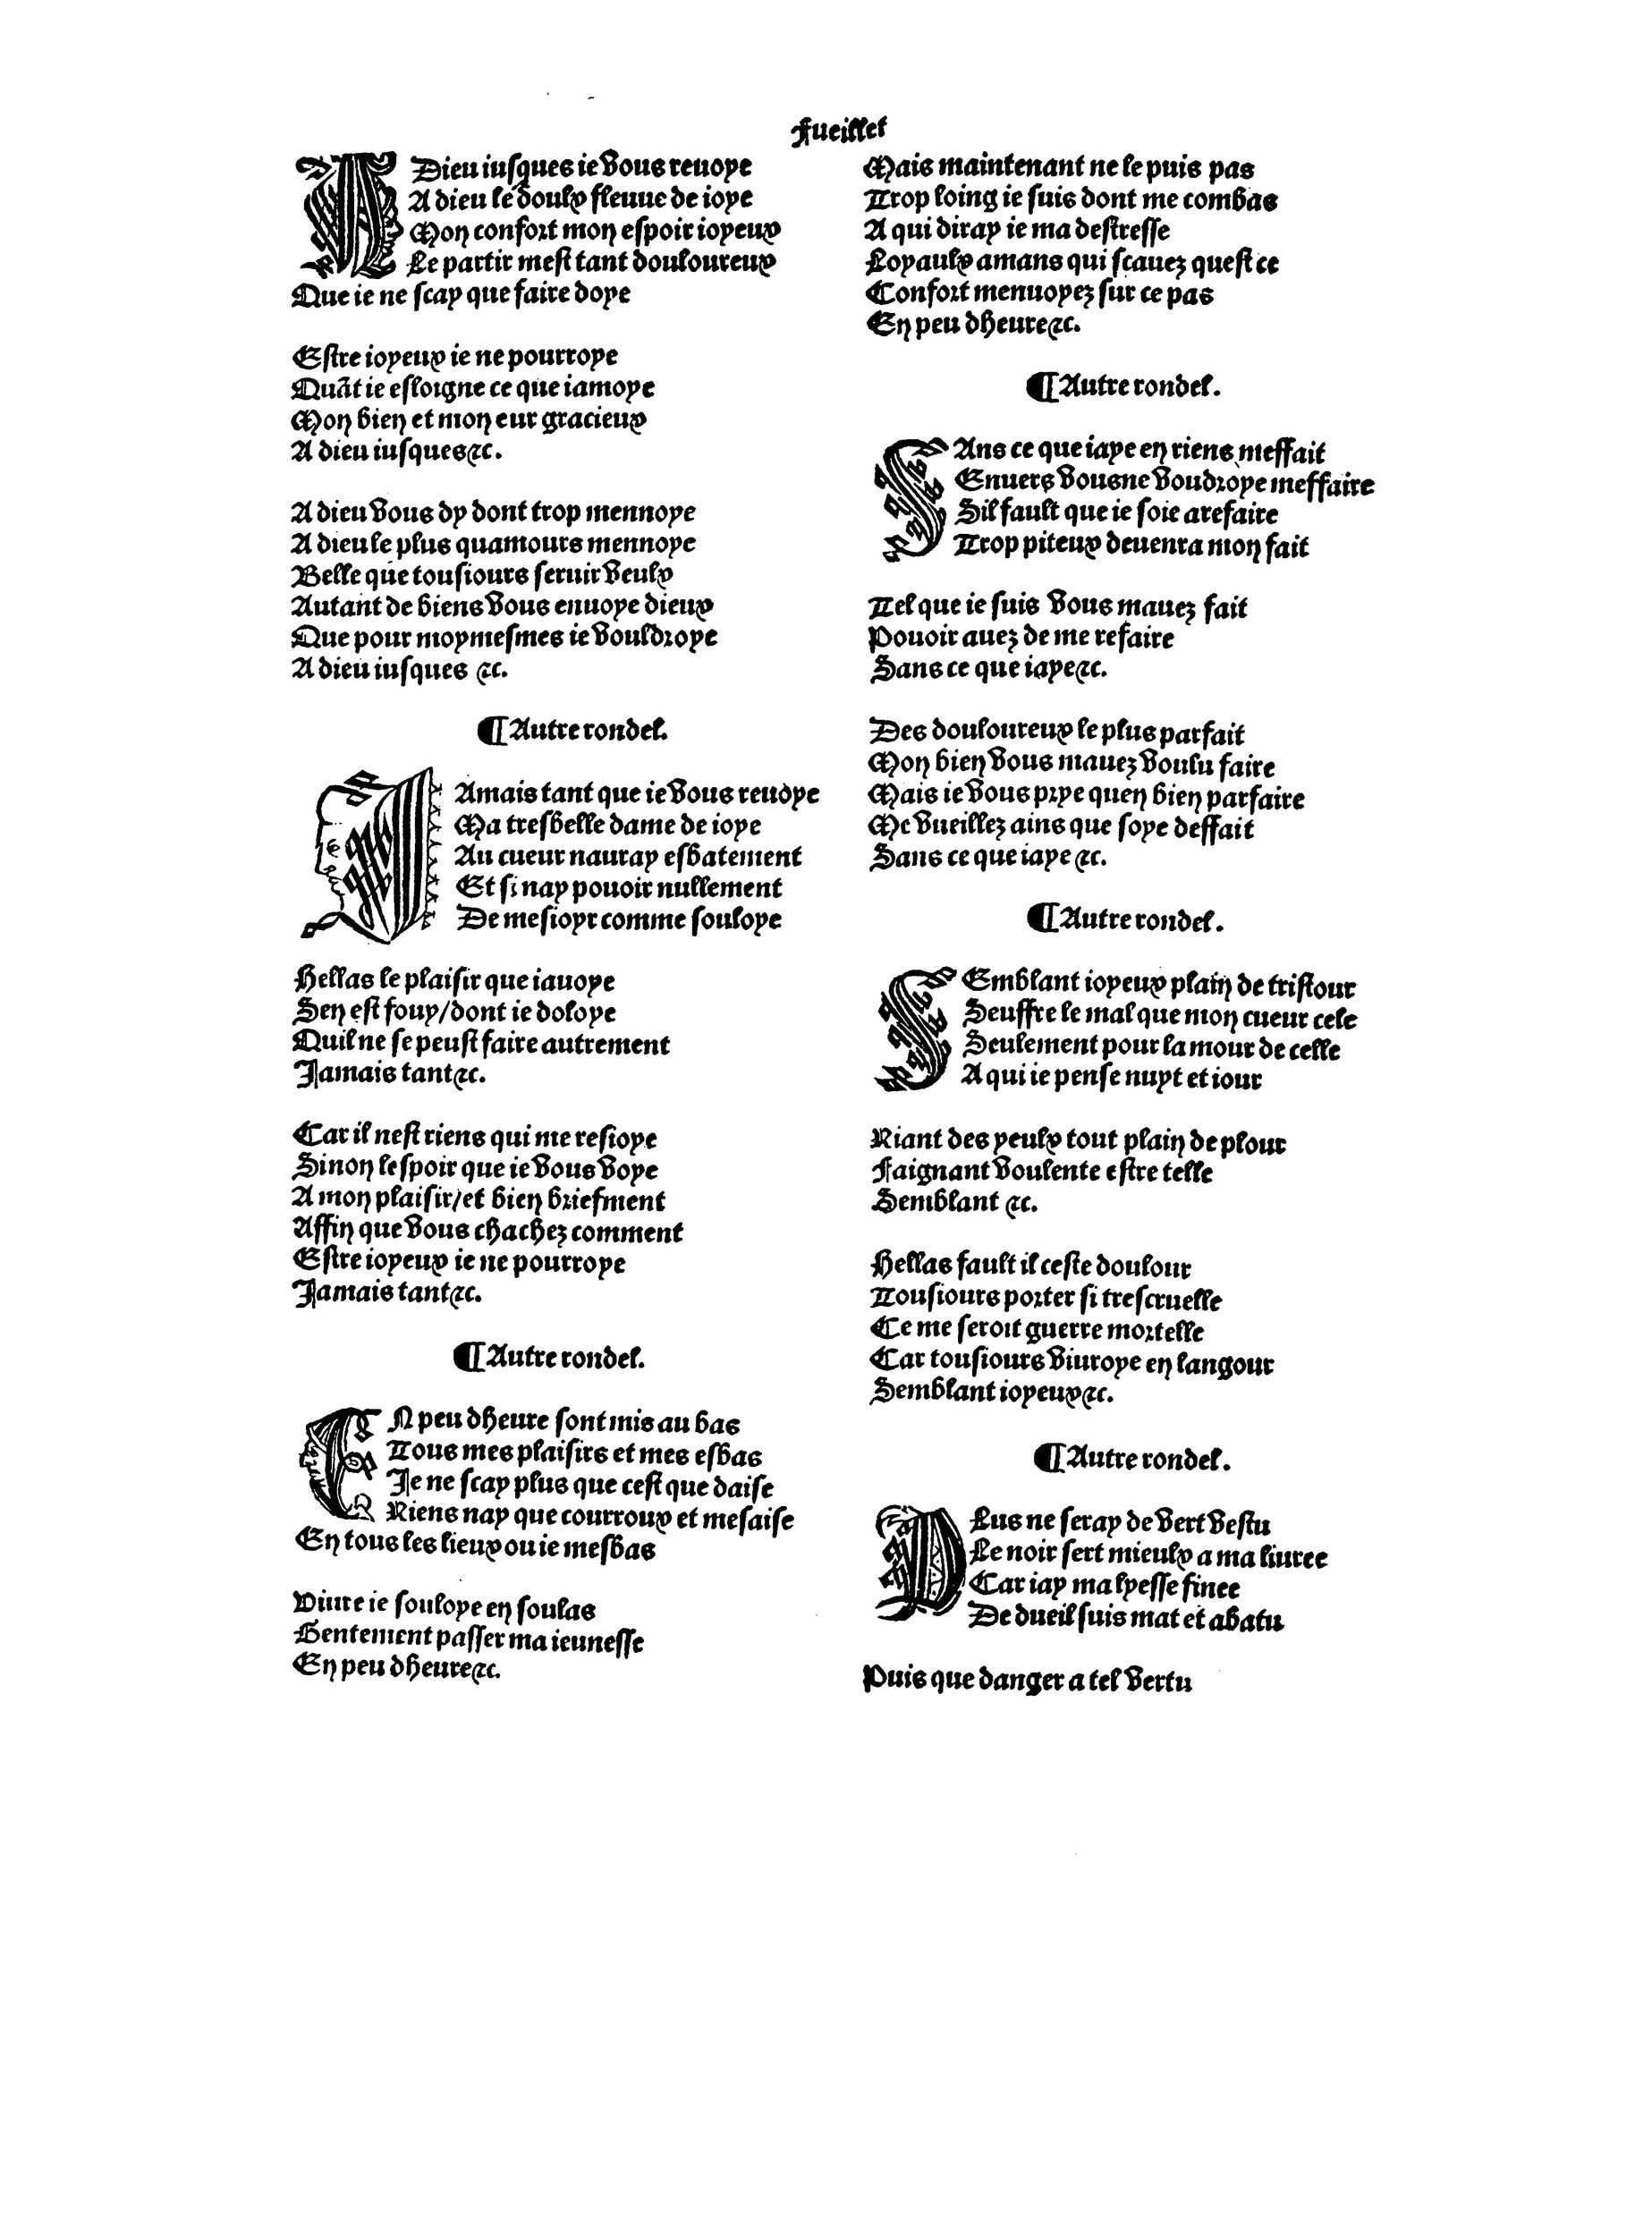 Fueillet
ADieu iusques ie vous reuoye
A dieu le doulx fleuue de ioye
Mon confort mon espoir ioyeux
Le partir mest tant douloureux
Que ie ne scay que faire doye
Estre ioyeux ie ne pourroye
Quãt ie esloigne ce que iamoye
Mon bien et mon eur gracieux
A dieu iusques⁊c.
A dieu vous dy dont trop mennoye
A dieu le plus quamours mennoye
Belle que tousiours seruir veulx
Autant de biens vous enuoye dieux
Que pour moymesmes ie vouldroye
A dieu iusques ⁊c.
¶Autre rondel.
IAmais tant que ie vous reuoye
Ma tresbelle dame de ioye
Au cueur nauray esbatement
Et si nay pouoir nullement
De mesioyr comme souloye
Hellas le plaisir que iauoye
Sen est fouy/dont ie doloye
Quil ne se peust faire autrement
Jamais tant⁊c.
Car il nest riens qui me resioye
Sinon lespoir que ie vous voye
A mon plaisir/et bien briefment
Affin que vous chachez comment
Estre ioyeux ie ne pourroye
Jamais tant⁊c.
¶Autre rondel.
EN peu dheure sont mis au bas
Tous mes plaisirs et mes esbas
Je ne scay plus que cest que daise
Riens nay que courroux et mesaise
En tous les lieux ou ie mesbas
Viure ie souloye en soulas
Gentement passer ma ieunesse
En peu dheure⁊c.
Mais maintenant ne le puis pas
Trop loing ie suis dont me combas
A qui diray ie ma destresse
Loyaulx amans qui scauez quest ce
Confort menuoyez sur ce pas
En peu dheure⁊c.
¶Autre rondel.
SAns ce que iaye en riens meffait
Enuers vousne voudroye meffaire
Sil fault que ie soie arefaire
Trop piteux deuenra mon fait
Tel que ie suis vous mauez fait
Pouoir auez de me refaire
Sans ce que iaye⁊c.
Des douloureux le plus parfait
Mon bien vous mauez voulu faire
Mais ie vous prye quen bien parfaire
Me vueillez ains que soye deffait
Sans ce que iaye ⁊c.
¶Autre rondel.
SEmblant ioyeux plain de tristour
Seuffre le mal que mon cueur cele
Seulement pour lamour de celle
A qui ie pense nuyt et iour
Riant des yeulx tout plain de plour
Faignant voulente estre telle
Semblant ⁊c.
Hellas fault il ceste doulour
Tousiours porter si trescruelle
Ce me seroit guerre mortelle
Car tousiours viuroye en langour
Semblant ioyeux⁊c.
¶Autre rondel.
PLus ne seray de vert vestu
Le noir sert mieulx a ma liuree
Car iay ma lyesse finee
De dueil suis mat et abatu
Puis que danger a tel vertu